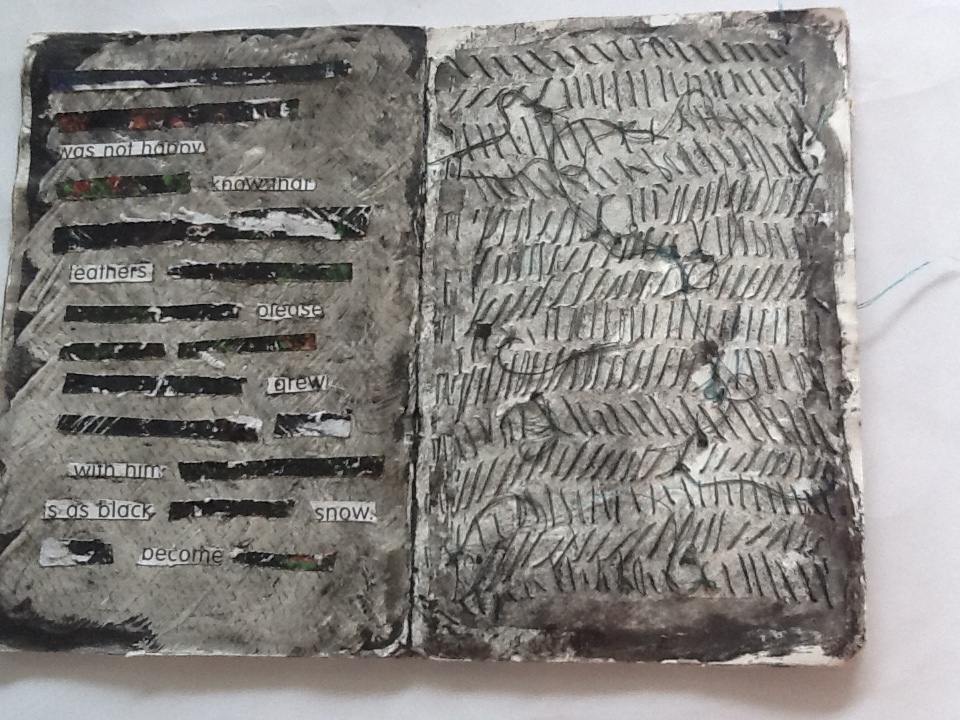 was not happy
know that
feathers
please
grew
with him
is as black snow.
become